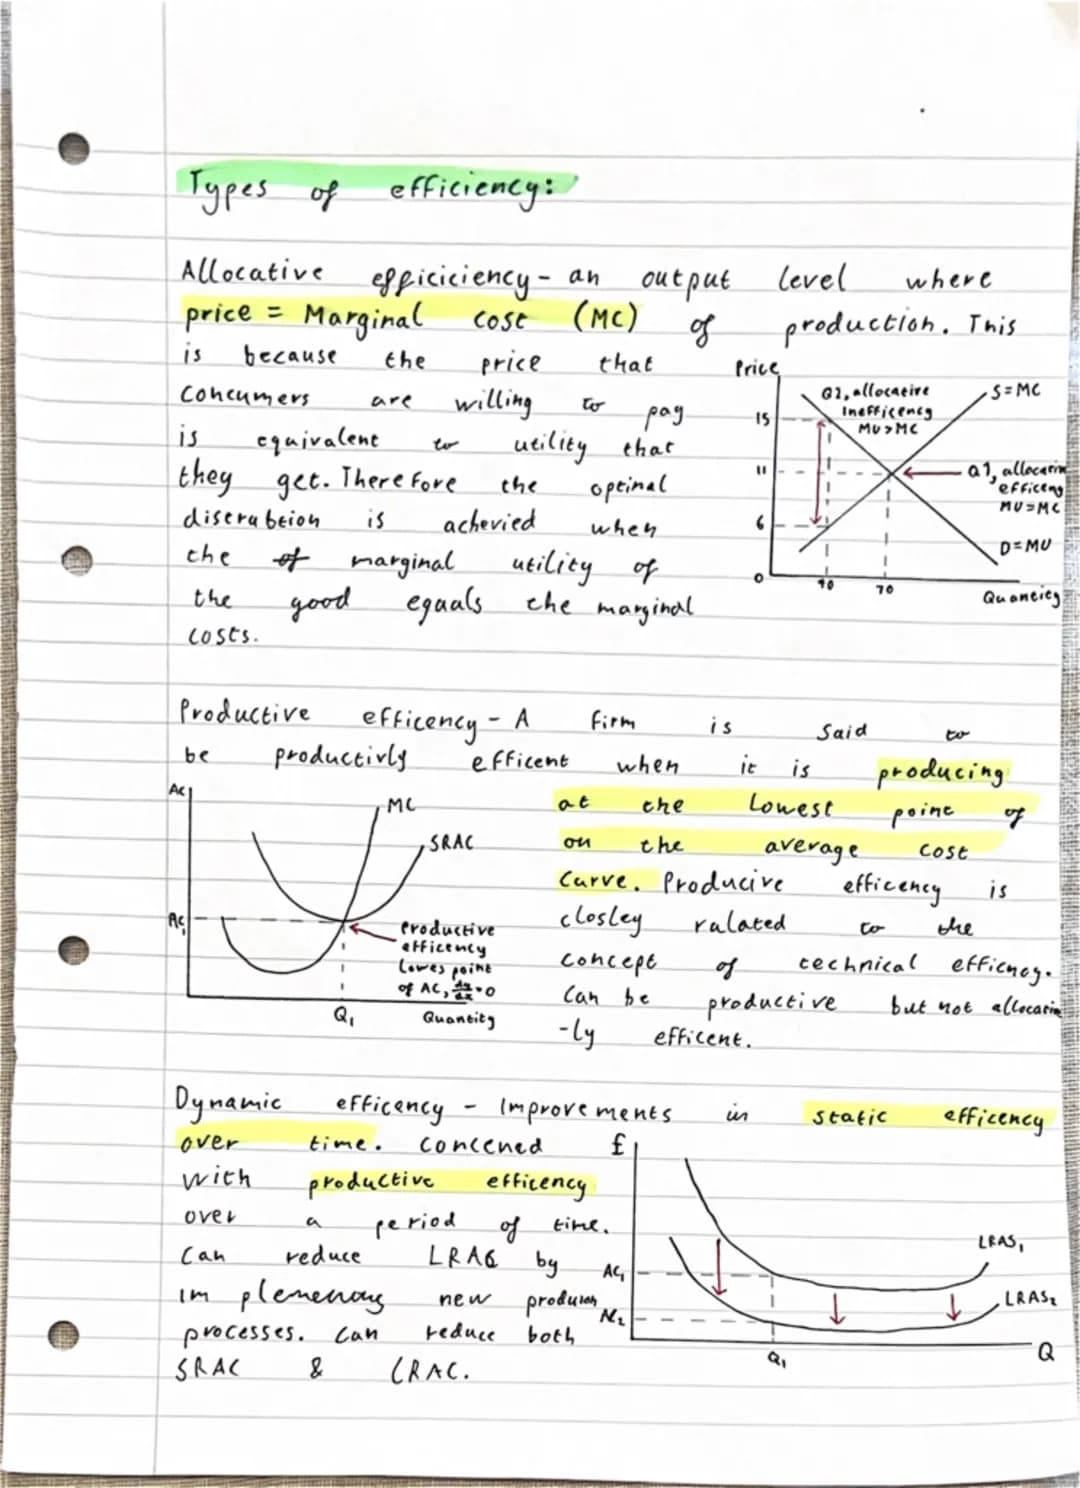 Types of efficiency:
Allocative efficiciency - an output level where
price = Marginal cost (MC) of production. This
is because the price that
concumers are willing to pay
is equivalent to utility that
they get. Therefore the optinal
discrabtion is achevied when
the of marginal utility of
the good equals the marginal
costs.
Price
15
11
6
0
Q2, allocative
inefficency
MU>MC
S=MC
Q1, allocativ
efficeny
MU=MC
D=MU
40
70
Quantity
Productive efficency - A firm is said to
be productivly efficent when it is producing
at the lowest point of
on the average cost
curve. Producive efficency is
closley ralated to the
concept of technical efficnoy.
Can be productive but not allocativ
-ly efficent.
AC
MC
SRAC
AC1
Productive
efficency
Lowes point
of AC, dy/dx=0
Q1
Quantity
Dynamic efficency - Improvements in static efficency
over time. Concened
with productive efficency
over a period of time.
Can reduce LRAC by
implemenong new produion
processes. Can reduce both
SRAC & LRAC.
£
AC1
AC2
LRAS1
LRAS2
Q1
Q